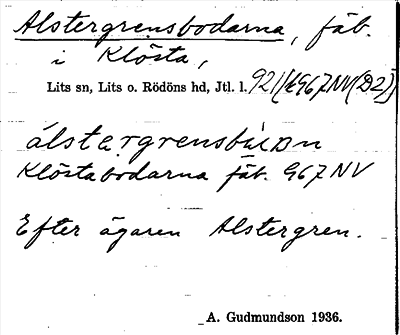 Alstergrensbodarna, fäb.
i Klösta,
Lits sn, Lits o. Rödöns hd, Jtl. l. 921/(G967NV(D2))
álstergrensbùɷn
Klöstabodarna fäb. G67NV
Efter ägaren Alstergren.
A. Gudmundson 1936.